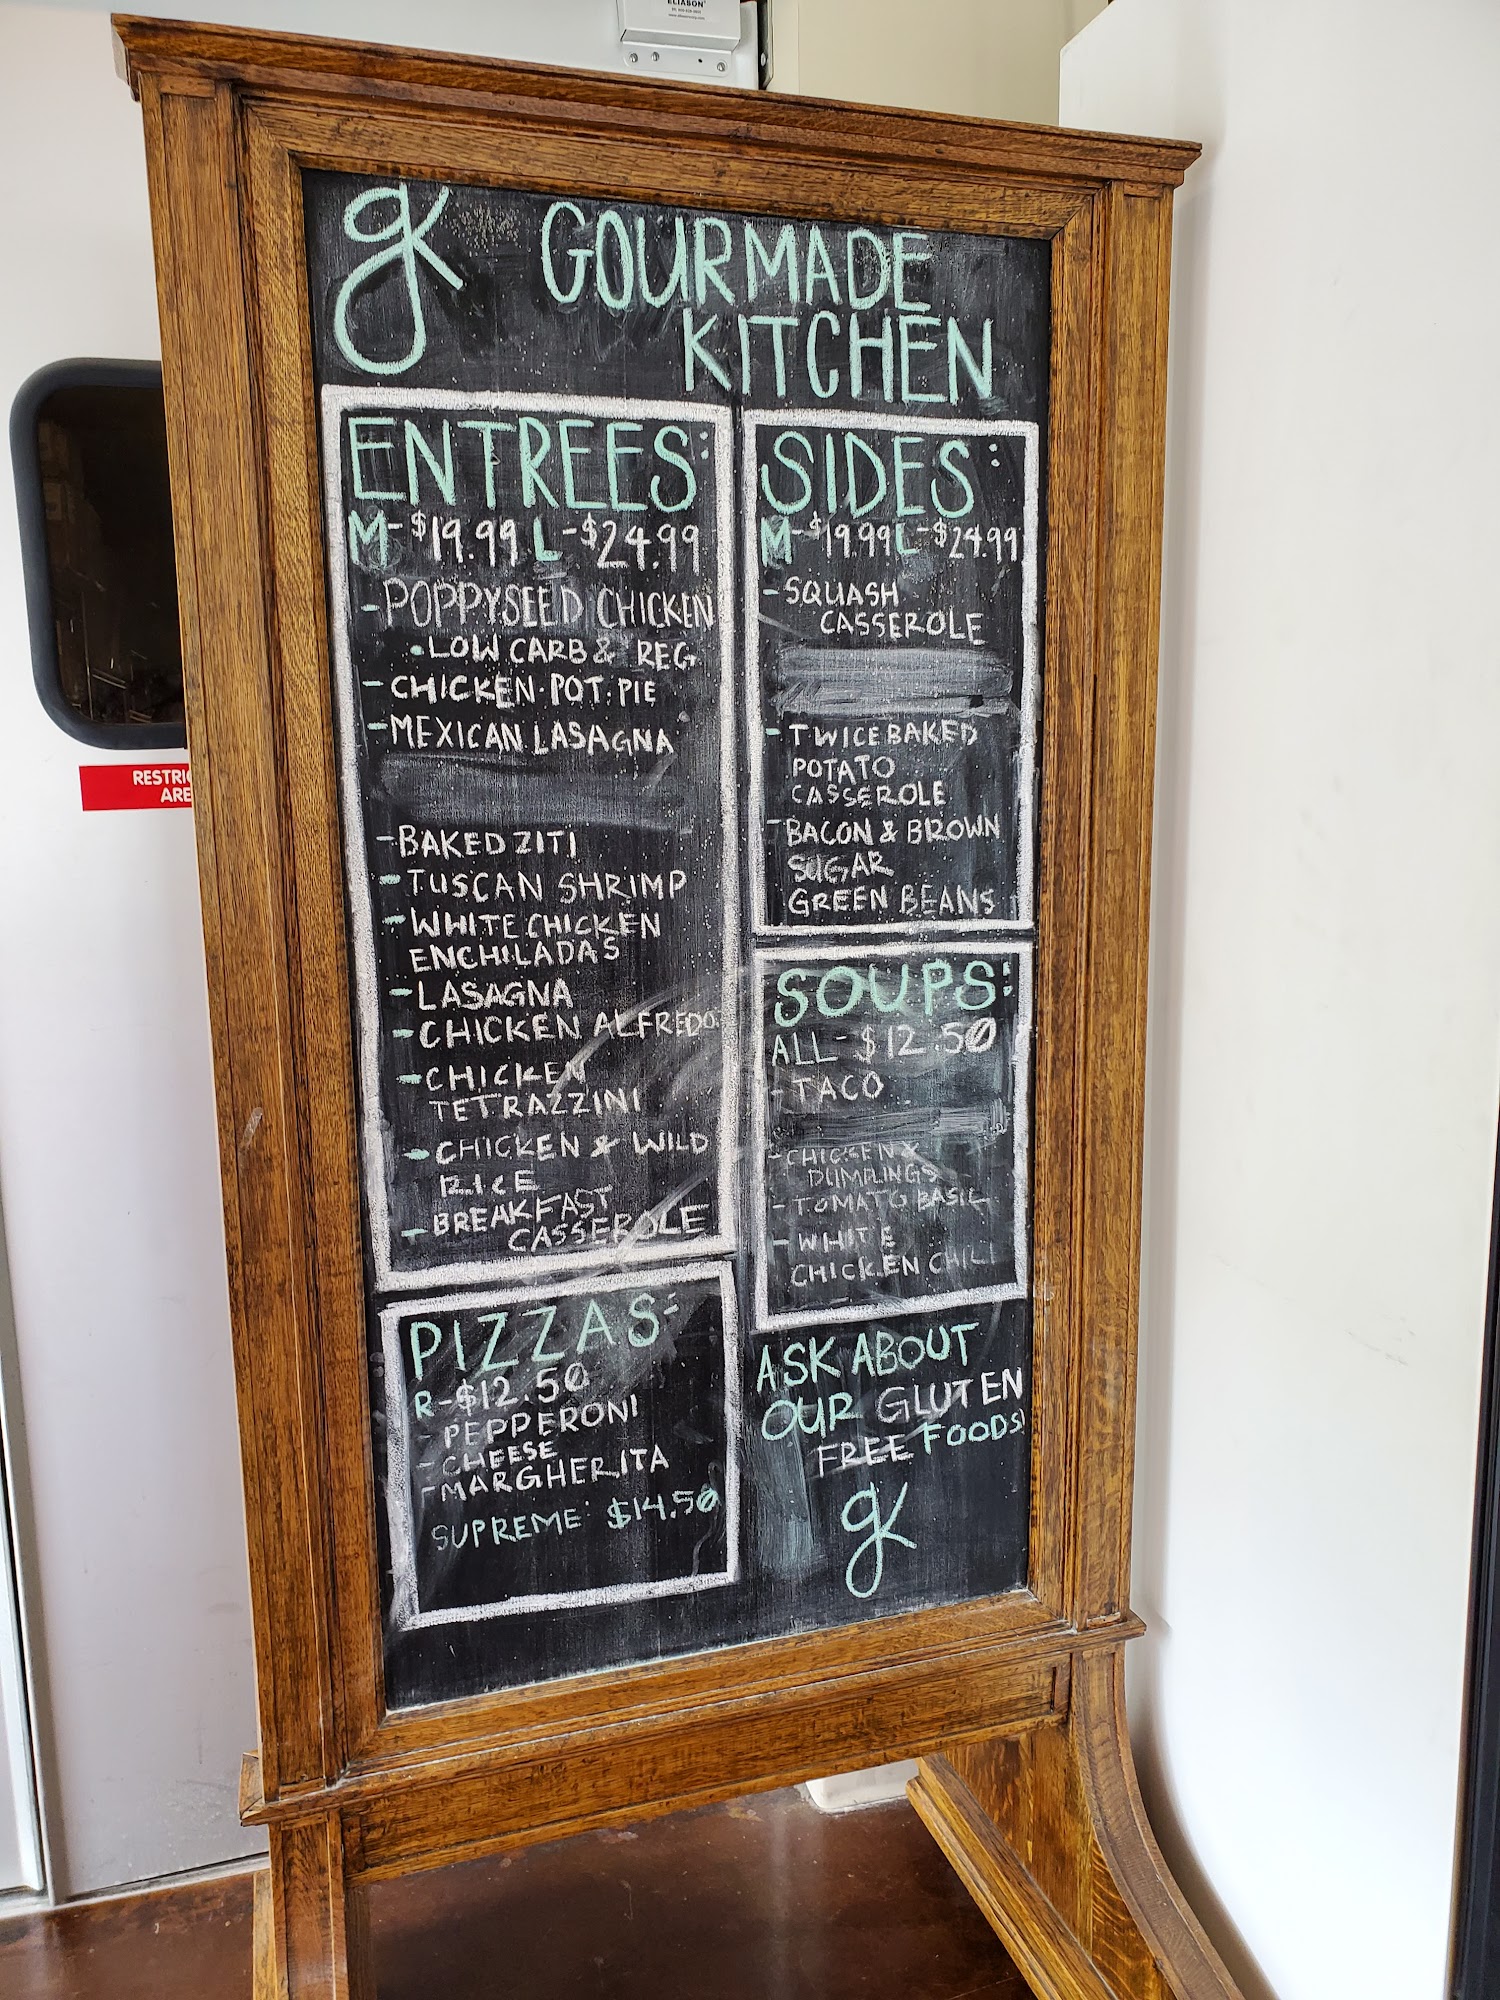 ELIASON
gk GOURMADE
KITCHEN
ENTREES:
M-$19.99 L-$24.99
-POPPYSEED CHICKEN
•LOW CARB & REG
-CHICKEN·POT·PIE
-MEXICAN LASAGNA
-BAKED ZITI
-TUSCAN SHRIMP
-WHITE CHICKEN
ENCHILADAS
-LASAGNA
-CHICKEN ALFREDO
-CHICKEN
TETRAZZINI
-CHICKEN & WILD
RICE
-BREAKFAST
CASSEROLE
PIZZAS:
R-$12.50
-PEPPERONI
-CHEESE
-MARGHERITA
SUPREME: $14.50
SIDES:
M-$19.99 L-$24.99
-SQUASH
CASSEROLE
-TWICE BAKED
POTATO
CASSEROLE
-BACON & BROWN
SUGAR
GREEN BEANS
SOUPS:
ALL-$12.50
-TACO
-CHICKEN &
DUMPLINGS
-TOMATO BASIL
-WHITE
CHICKEN CHILI
ASK ABOUT
OUR GLUTEN
FREE FOODS!
gk
RESTRIC
ARE